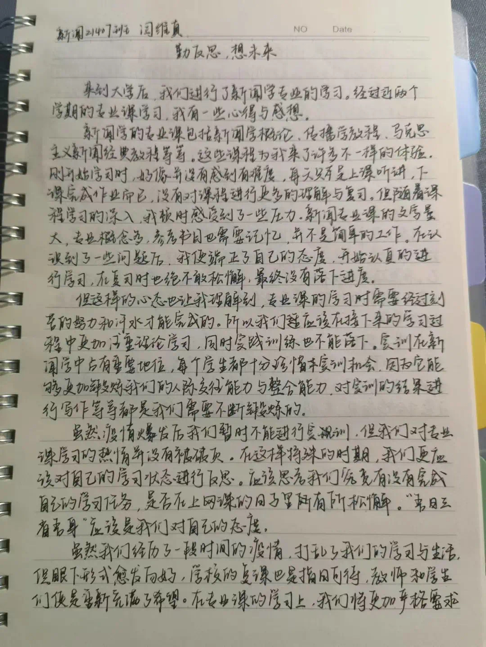 新闻2140729 闫维真
NO Date
勤反思,想未来
来到大学后,我们进行了新闻学专业的学习。经过近两个
学期的专业课学习,我有一些心得与感想。
新闻学的专业课包括新闻学概论、传播学教程、马克思
主义新闻经典教程等等。这些课程为我来了许多不一样的体验。
刚开始学习时,好像并没有感到有难度,每天只不是上课听讲,下
课完成作业而已,没有对课程进行更多的理解与复习。但随着课
程学习的深入,我顿时感受到了一些压力。新闻专业课的文字量
大,专业概念多,参考书目也需要记忆,并不是简单的工作。在认
识到了一些问题后,我便端正了自己的态度,开始认真的进
行学习,在复习时也绝不敢松懈,最终没有落下进度。
但这样的心态也让我理解到,专业课的学习时需要经过刻
苦的努力和汗水才能完成的。所以我们应该在接下来的学习过
程中更加注重理论学习,同时实践训练也不能落下。实训在新
闻学中占有重要地位,每个学生都十分珍惜本实训机会,因为它能
够更加锻炼我们的人际交往能力与整合能力,对实训的结果进
行写作等等都是我们需要不断锻炼的。
虽然疫情爆发后我们暂时不能进行实训,但我们对专业
课学习的热情并没有积极灭。在这样特殊的时期,我们更应
该对自己的学习状态进行反思。应该思考我们究竟有没有完成
自己的学习任务,是否在上网课的日子里有所松懈。“吾日三
省吾身”应该是我们对自己的态度。
虽然我们经历了一段时间的疫情,打乱了我们的学习与生活,
但眼下形式愈发向好,学校的复课也是指日可待,教师和学生
们便是重新充满了希望。在专业课的学习上,我们将更加严格要求